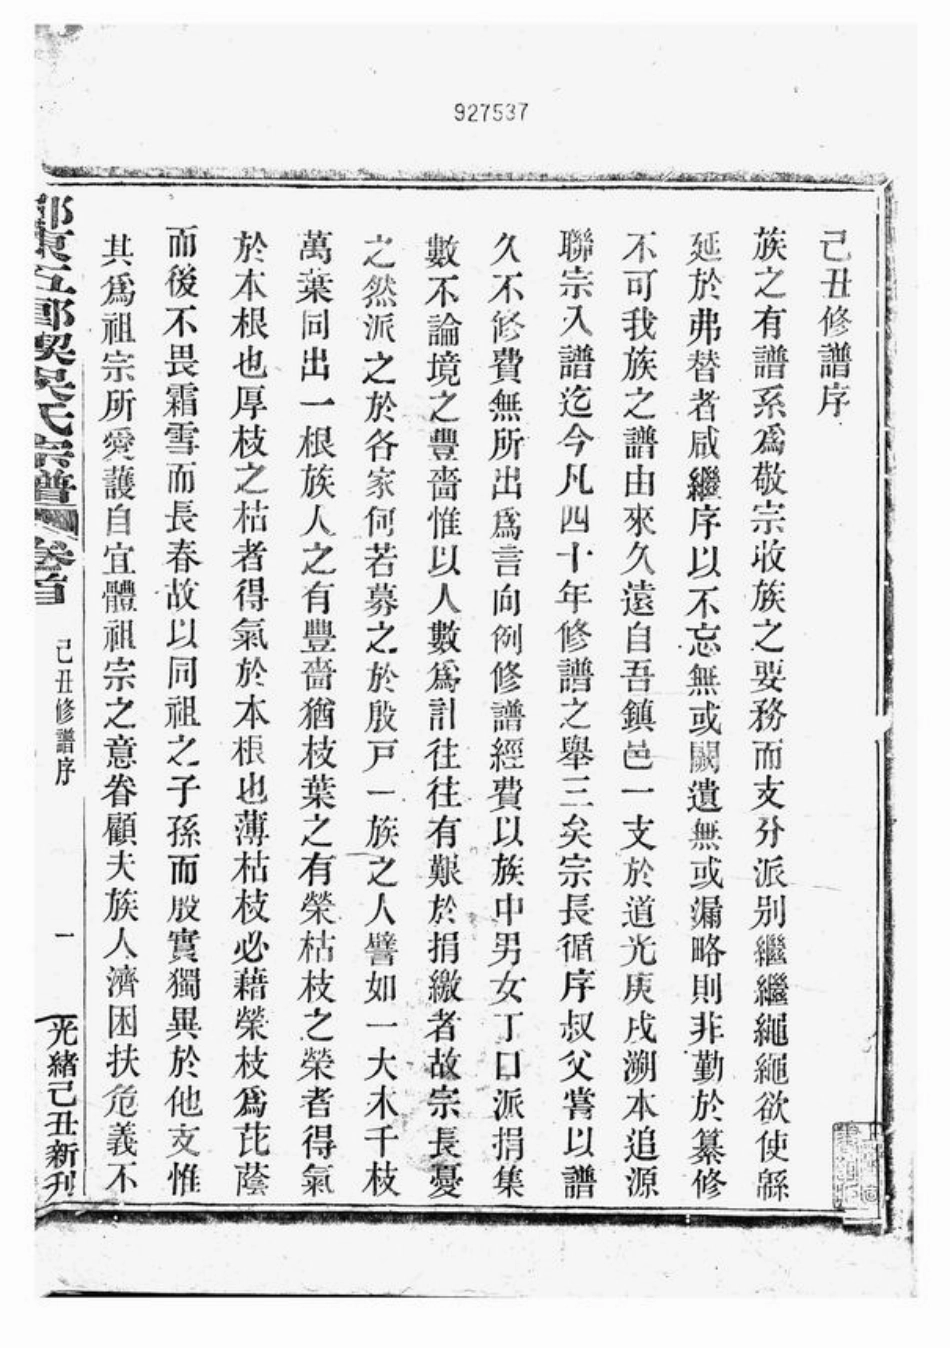 927537
己丑修譜序
族之有譜系爲敬宗收族之要務而支分派別繼繼繩繩欲使緜
延於弗替者咸繼序以不忘無或闕遺無或漏略則非勤於纂修
不可我族之譜由來久遠自吾鎮邑一支於道光庚戌溯本追源
聯宗入譜迄今凡四十年修譜之舉三矣宗長循序叔父嘗以譜
久不修費無所出爲言向例修譜經費以族中男女丁口派捐集
數不論境之豐嗇惟以人數爲計往往有艱於捐繳者故宗長憂
之然派之於各家何若募之於殷戸一族之人譬如一大木千枝
萬葉同出一根族人之有豐嗇猶枝葉之有榮枯枝之榮者得氣
於本根也厚枝之枯者得氣於本根也薄枯枝必藉榮枝爲芘蔭
而後不畏霜雪而長春故以同祖之子孫而殷實獨異於他支惟
其爲祖宗所愛護自宜體祖宗之意眷顧夫族人濟困扶危義不
東五鄉 吳氏宗譜 卷首
己丑修譜序
一
光緒己丑新刊